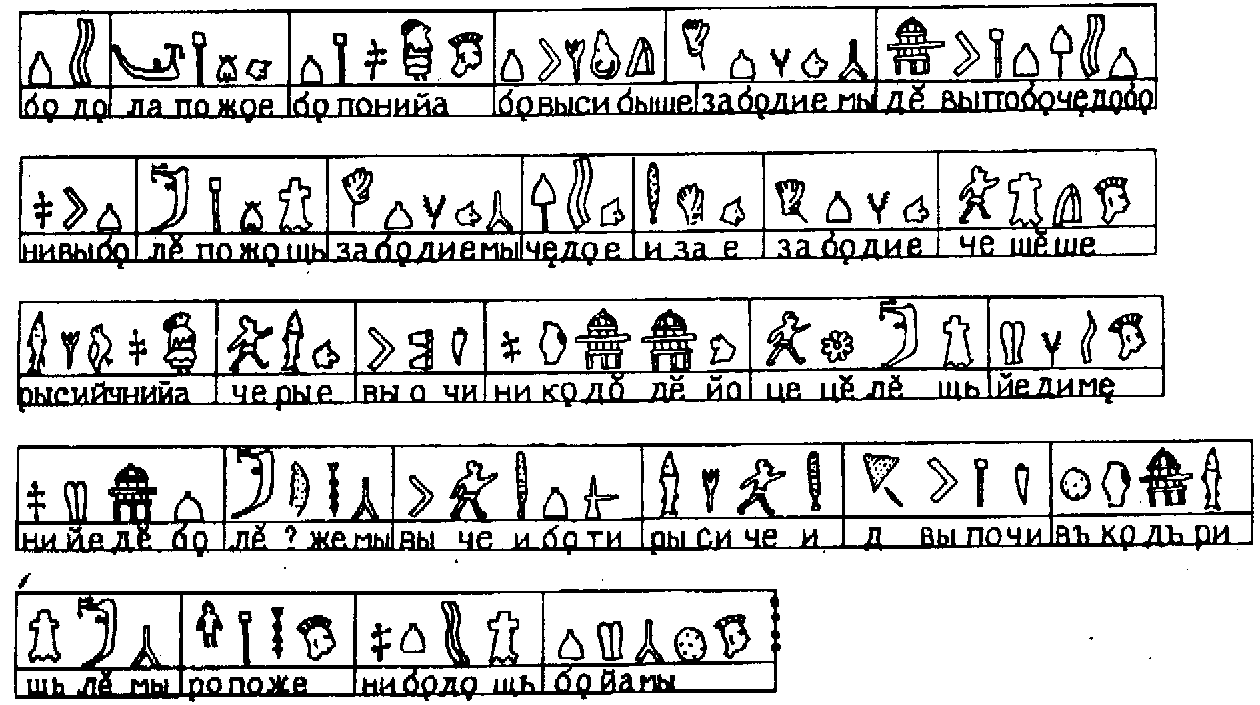 бо до ла по жо е бо по ни йа бо вы си бы ше за бо ди е мы дѣ вы по бо че до бо
ни вы бо лѣ по жо щь за бо ди е мы че до е и за е за бо ди е че шѣ ше
ры си йч ни йа че ры е вы о чи ни ко дѣ дѣ йо це цѣ лѣ щь йе ди ме
ни йе дѣ бо лѣ ? же мы вы че и бо ти ры си че и д вы по чи въ ко дь ри
щь лѣ мы ро по же ни бо до щь бо йа мы